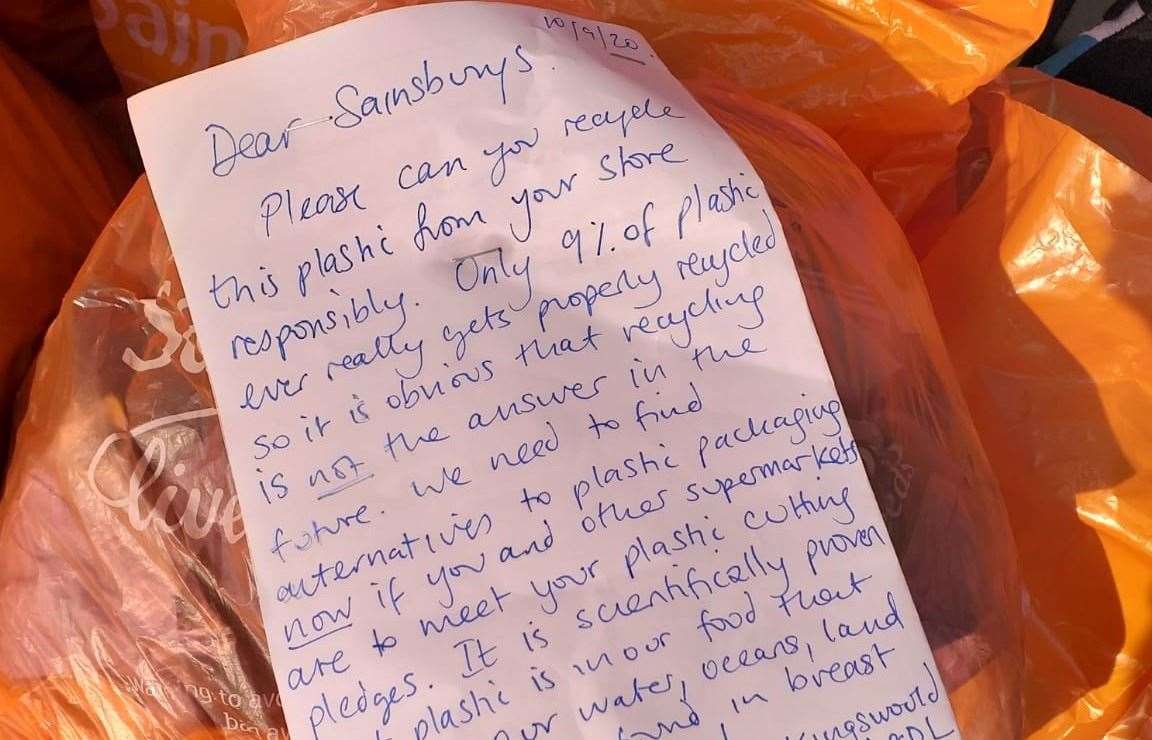 Sain
10/9/20
Dear Sainsburys.
Please can you recycle
this plastic from your store
responsibly. Only 9% of plastic
ever really gets properly recycled
so it is obvious that recycling
is not the answer in the
future. We need to find
auternatives to plastic packaging
now if you and other supermarkets
are to meet your plastic cutting
pledges. It is scientifically proven
plastic is in our food that
our water, oceans, land
in breast
Kingswould
live
to avo